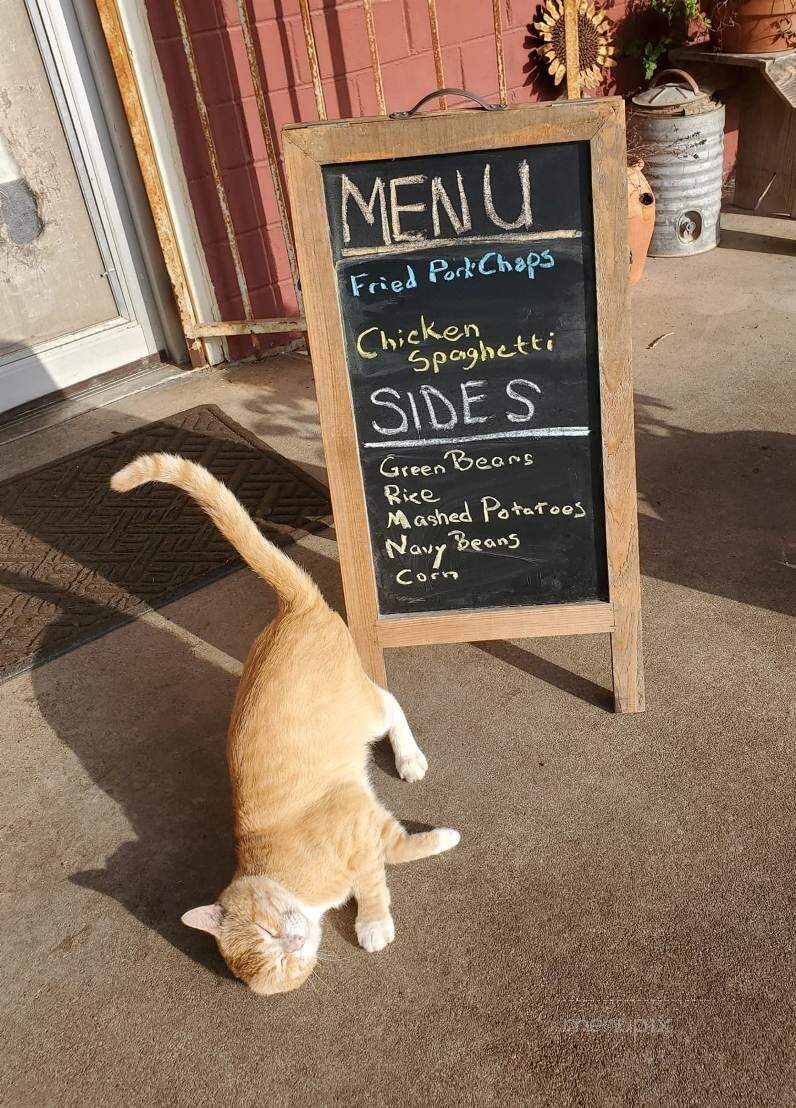 MENU
Fried Pork Chops
Chicken
Spaghetti
SIDES
Green Beans
Rice
Mashed Potatoes
Navy Beans
Corn
menupix